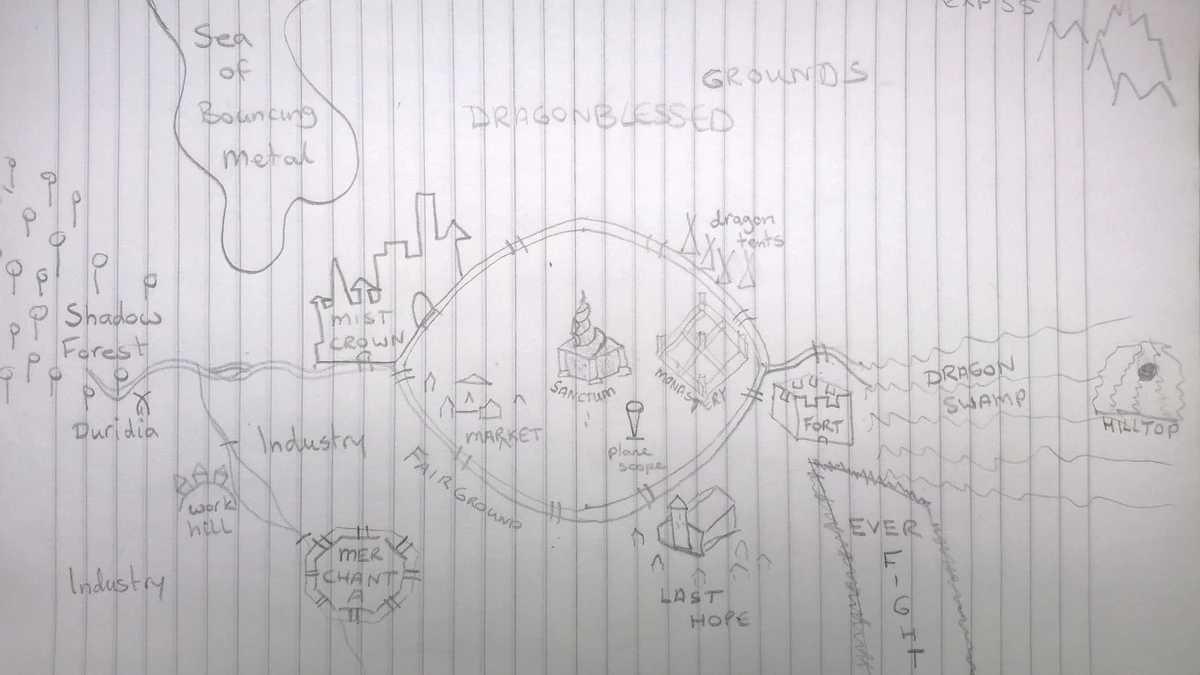 Sea
of
Bouncing
metal
GROUNDS
DRAGONBLESSED
dragon
tents
Shadow
Forest
MIST
CROWN
SANCTUM
MONASTERY
DRAGON
SWAMP
HILLTOP
FORT
Duridia
Industry
MARKET
plane
scope
FAIRGROUND
work
hill
MER
CHANT
A
EVER
LAST
HOPE
Industry